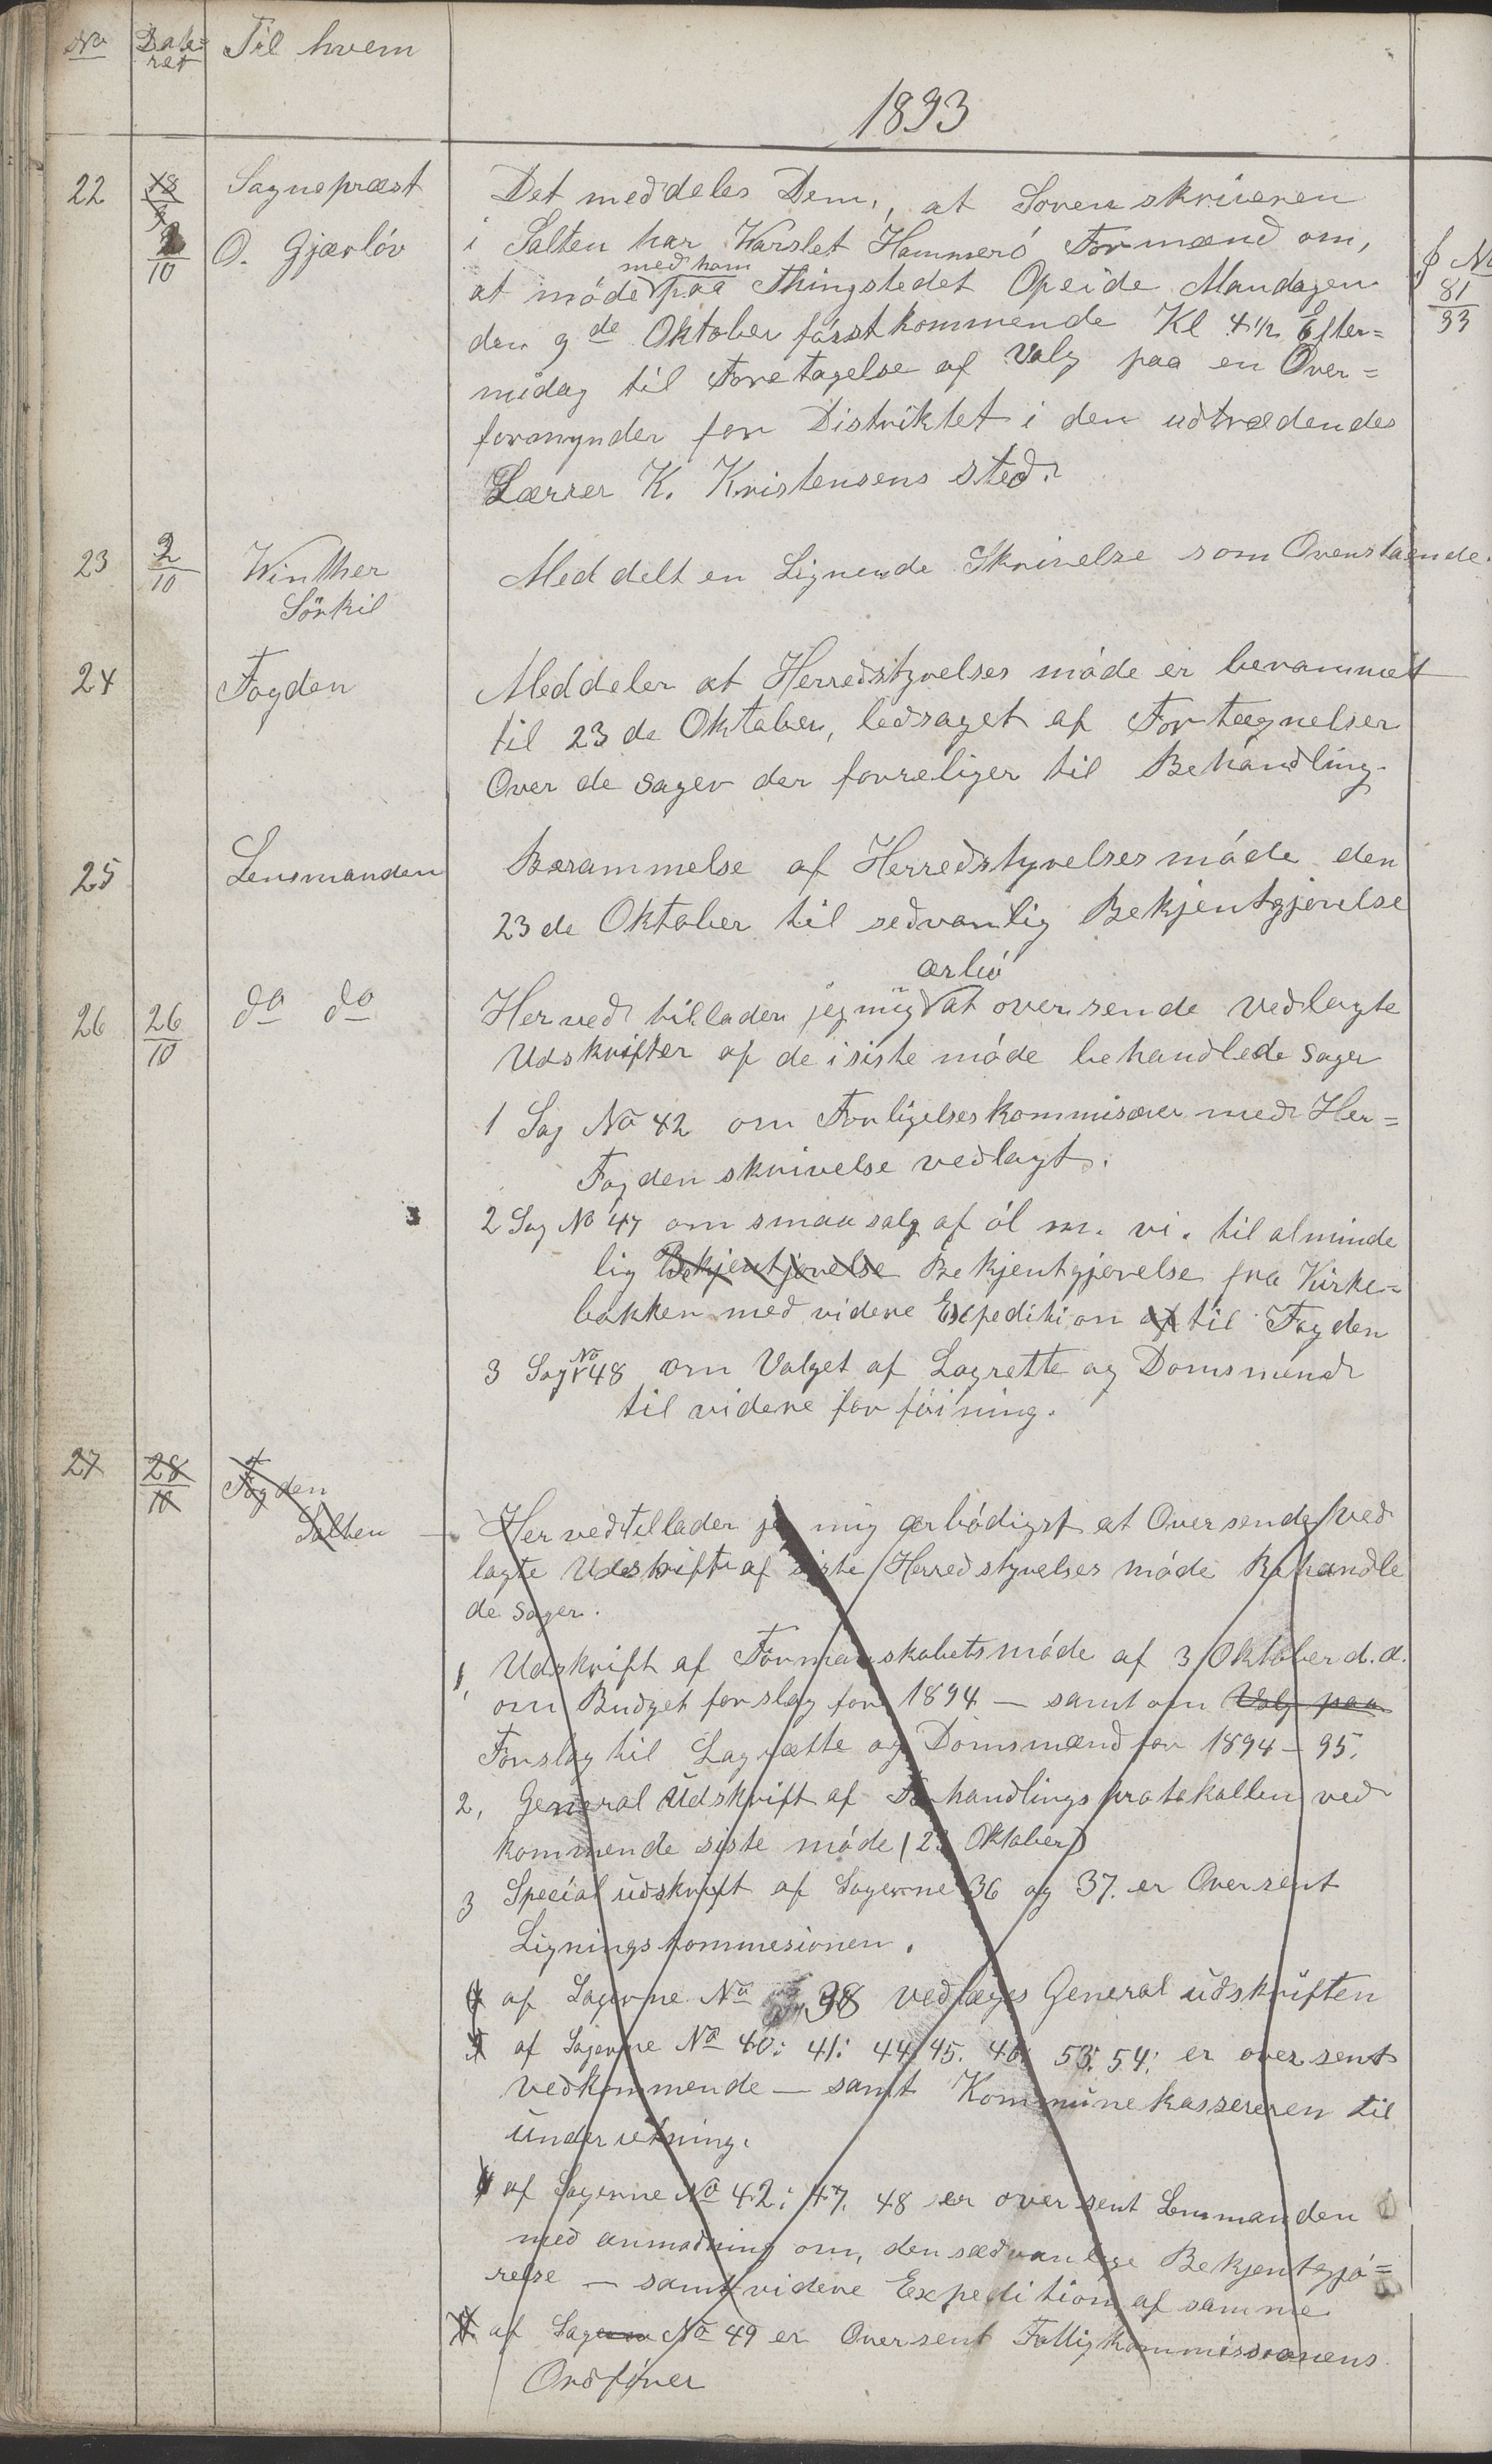 No Dateret Til hvem
1893
22 18/9 2/10 Sognepræst O. Gjærløv
Det meddeles Dem, at Sorenskriveren
i Salten har Varslet Hammerø Formænd om,
med ham
at møde paa Thingstedet Opeide Mandagen
den 9de Oktober førstkommende Kl 4 1/2 Efter=
midag til Foretagelse af Valg paa en Over=
formynder for Distriktet i den udtrædendes
Lærrer K. Kristensens sted.
J No 81/93
23 2/10 Winther Sørkil
Meddelt en Lignende Skrivelse som Ovenstaende.
24 Fogden
Meddeler at Herredstyrelses møde er berammet
til 23de Oktober, ledsaget af Fortegnelser
Over de sager der foreliger til Behandling.
25 Lensmanden
Berammelse af Herredstyrelses møde den
23de Oktober til sedvanlig Bekjentgjørelse
26 26/10 do do
ærbø
Herved tillader jeg mig at oversende vedlagte
Udskrifter af de i siste møde behandlede sager
1 Sag No 42 om Forligelseskommisærer med Her=
Fogden skrivelse vedlagt.
2 Sag No 47 om smaa salg af øl m. vi. til alminde
lig Bekjentjørelse Bekjentgjørelse fra Kirke=
bakken med videre Expedition af til Fogden
3 Sag No 48 om Valget af Lagrette og Domsmend
til videre forføining.
27 28/10 Fogden
Salten
Herved tillader je mig ærbødigst at Oversende ved
lagte Udskrift af siste Herredstyrelses møde Behandle
de sager.
1, Udskrift af Formanskabetsmøde af 3 Oktober d.d.
om Budget forslag for 1894 — samt om Valg paa
Forslag til Lagrætte og Domsmænd for 1894 – 95.
2, General Udskrift af Forhandlingsprotokollen ved
kommende siste møde (23 Oktober)
3 Special udskrift af Sagerne 36 og 37. er Oversent
Ligningskommesionen.
4 af Sagerne No 38 vedlæges General udskriften
5 af Sagerne No 40: 41: 44 45. 46: 53: 54: er oversent
vedkommende — samt Kommunekassereren til
underretning.
6 af Sagerne No 42: 47. 48 er oversent Lensmanden
med anmodning om, den sædvanlige Bekjentgjø=
relse — samt videre Expedition af samme
af Sagerne No 49 er Oversent Fattigkommissionens
Ordfører